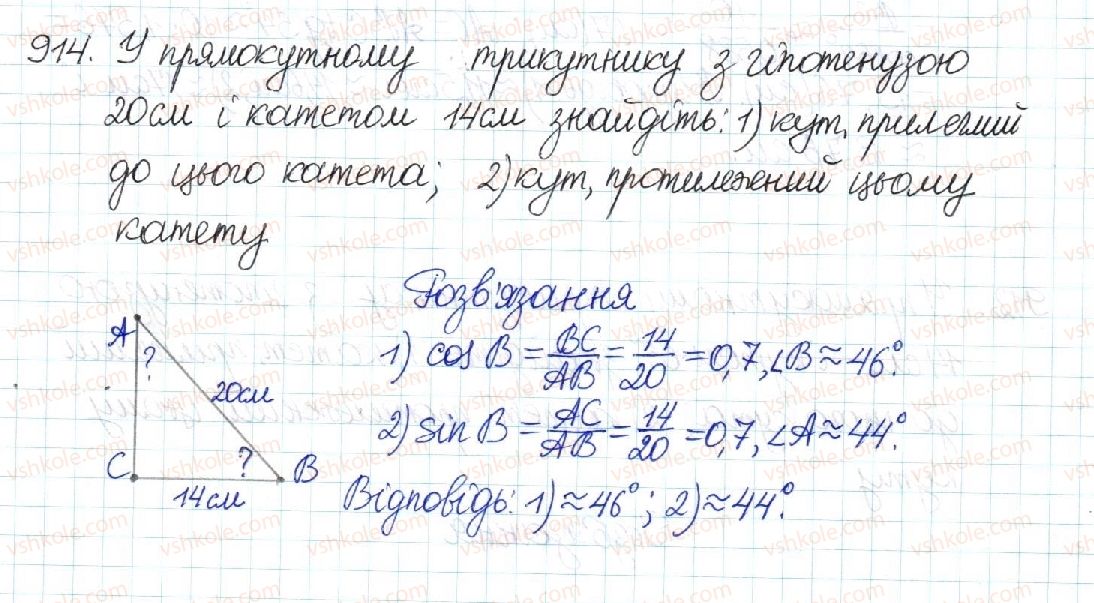 914. У прямокутному трикутнику з гіпотенузою
20см і катетом 14см знайдіть: 1) кут, прилеглий
до цього катета; 2) кут, протилежний цьому
катету
Розв'язання
A
?
20см
C
?
B
14см
1) cos B = BC/AB = 14/20 = 0,7, ∠B ≈ 46°.
2) sin B = AC/AB = 14/20 = 0,7, ∠A ≈ 44°.
Відповідь: 1) ≈ 46°; 2) ≈ 44°.
vshkole.com